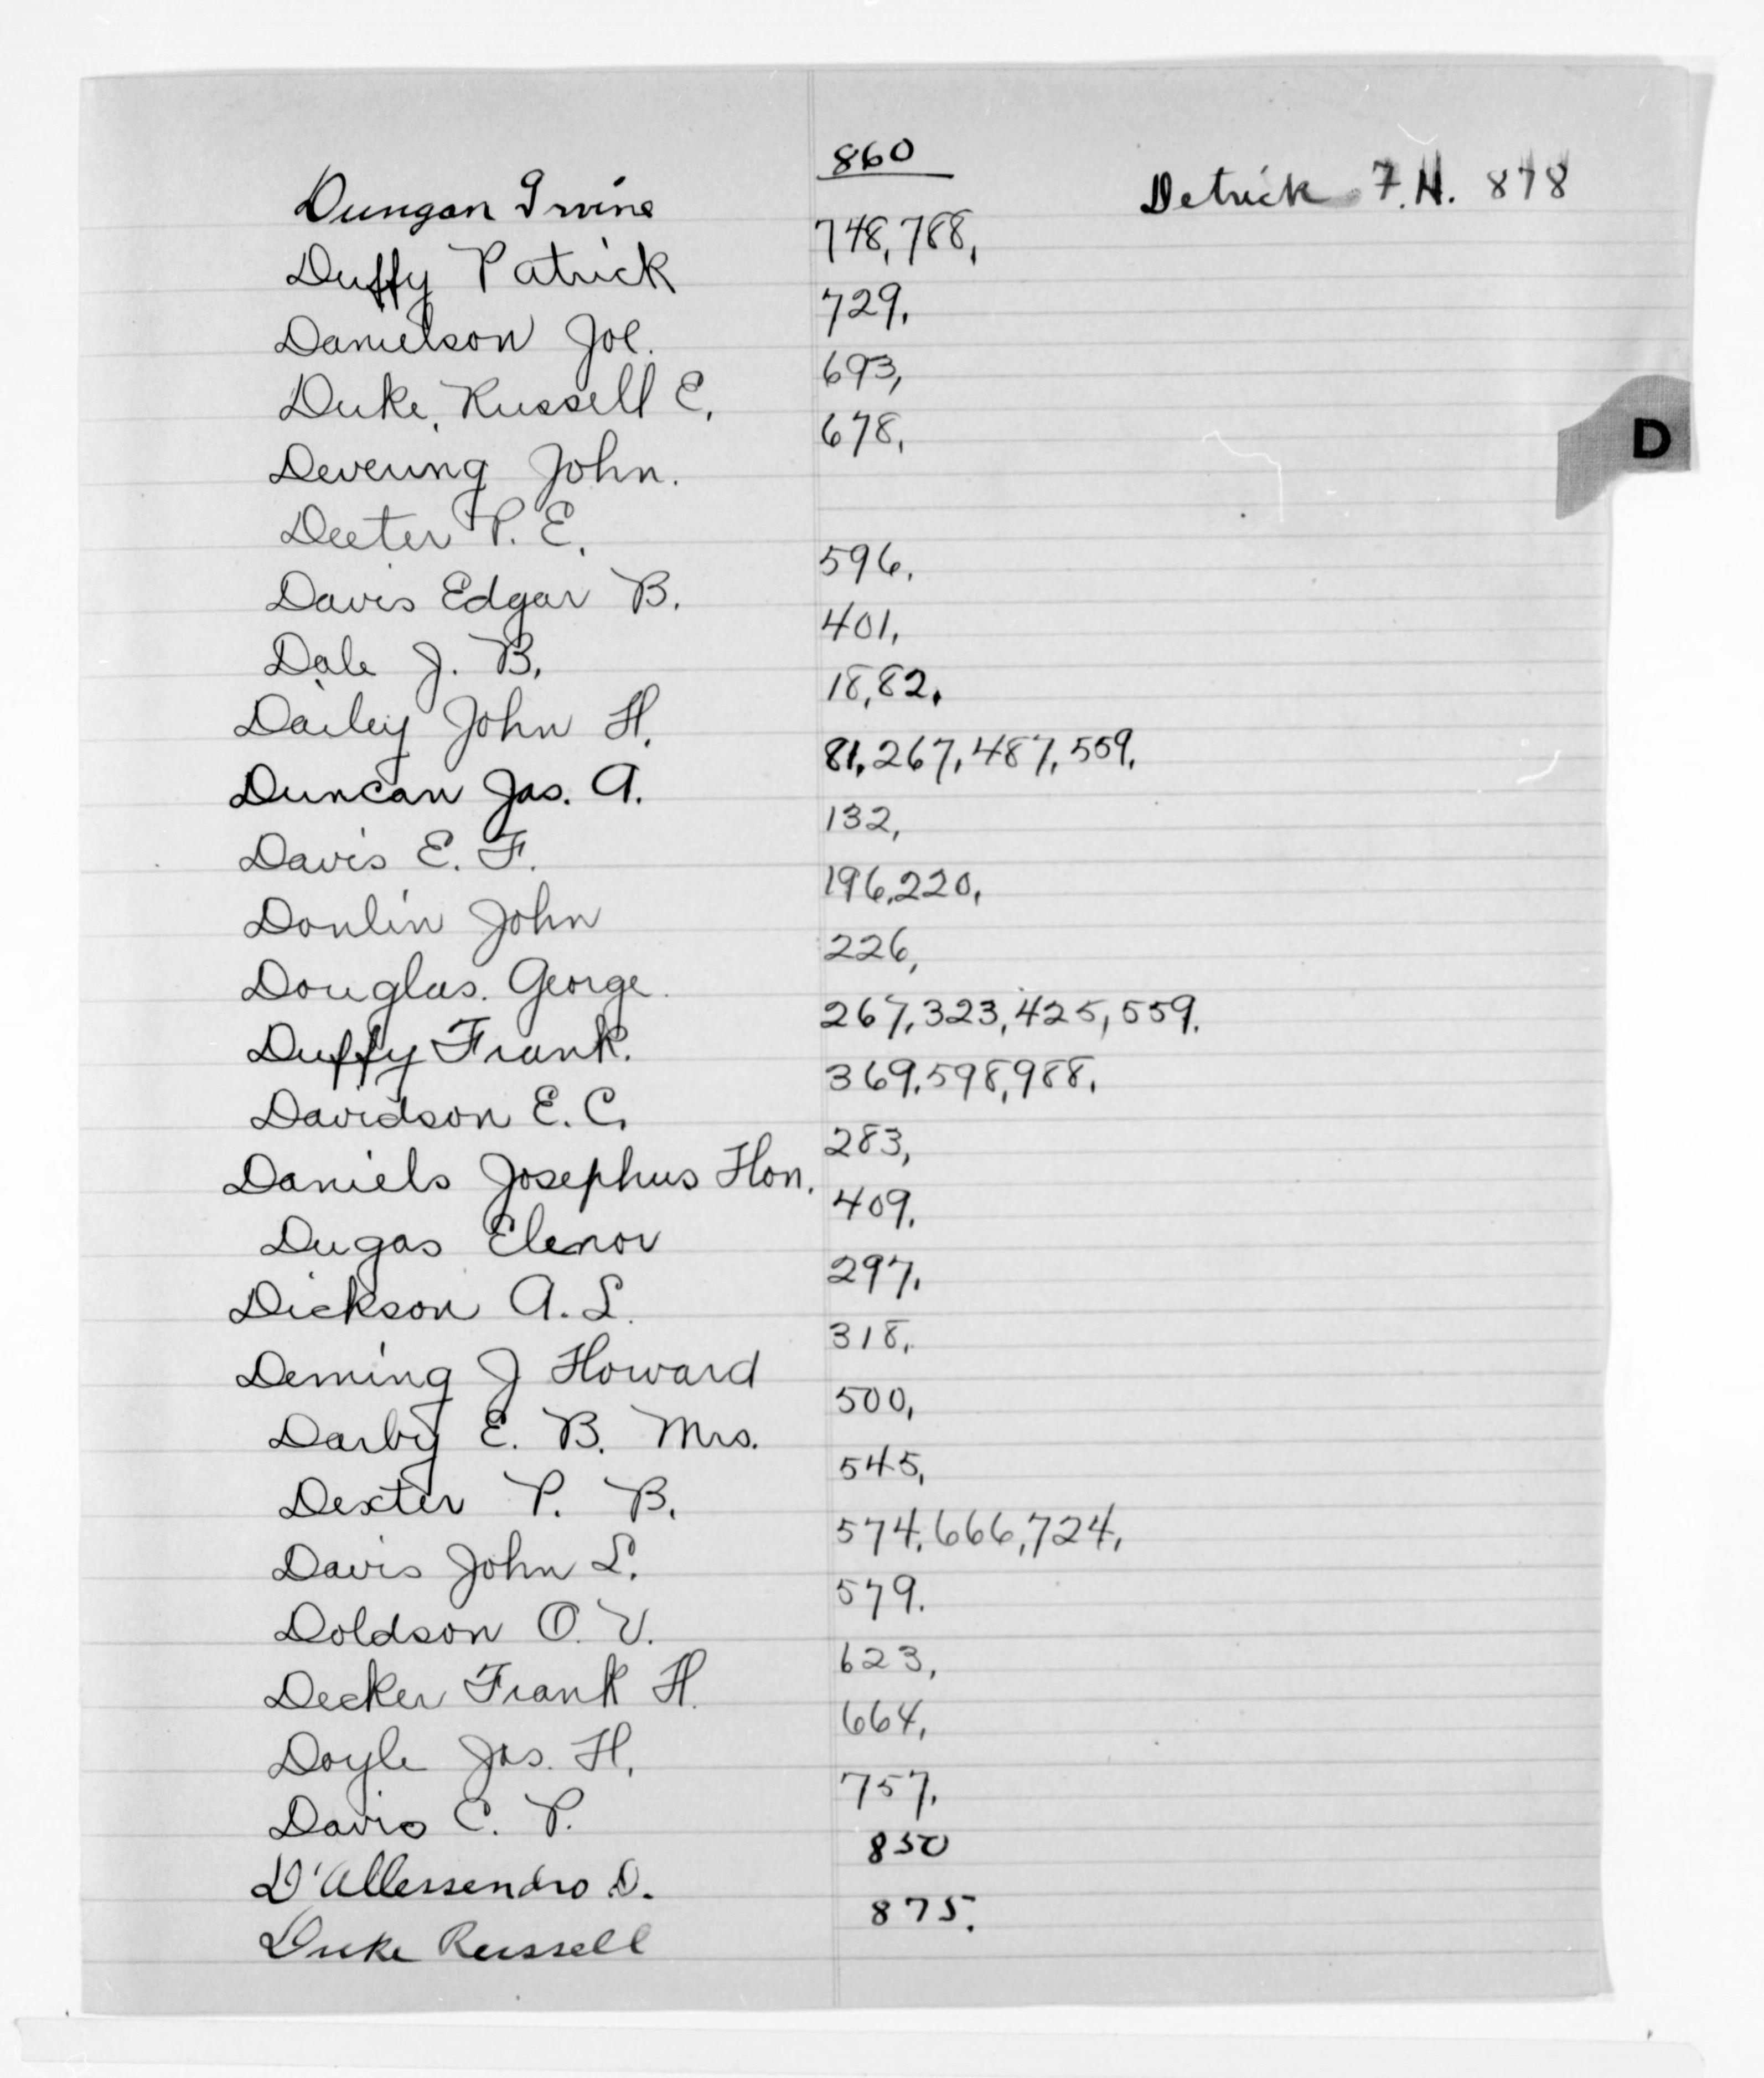 Dungan Irvine 860 Detrick F.H. 878
Duffy Patrick 748, 788,
Danielson Joe. 729,
Duke, Russell E. 693,
Devering John. 678,
Deeter P. E.
Davis Edgar B. 596,
Dale J. B. 401,
Dailey John H. 18, 82,
Duncan Jas. A. 81, 267, 487, 559,
Davis E. F. 132,
Donlin John 196, 220,
Douglas. George. 226,
Duffy Frank. 267, 323, 425, 559.
Davidson E. C. 369, 598, 988,
Daniels Josephus Hon. 283,
Dugas Elenor 409,
Dickson A. L. 297,
Deming J Howard 318,
Darby E. B. Mrs. 500,
Dexter P. B. 545,
Davis John L. 574, 666, 724,
Doldson O. V. 579.
Decker Frank H. 623,
Doyle Jas. H. 664,
Davis C. P. 757,
D'Allessendro D. 850
Duke Russell 875.
D